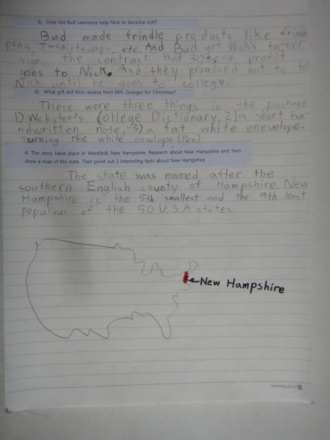 5) How did Bud Lawrence help Nick to become rich?
Bud made frindle products like frindle
pens, T-shirts, caps, etc. And Bud got Nick's father
sign the contract that 30% of profit
goes to Nick. And they promised not to tell
Nick until he goes to college.
6) What gift did Nick receive from Mrs. Granger for Christmas?
There were three things in the package
1) Webster's College Dictionary, 2) a short
handwritten note, 3) a fat white envelope.
7. The story takes place in Westfield, New Hampshire. Research about New Hampshire and then
draw a map of the state. Then point out 3 interesting facts about New Hampshire.
The state was named after the
southern English county of Hampshire. New
Hampshire is the 5th smallest and the 9th least
populous of the 50 U.S.A states.
New Hampshire